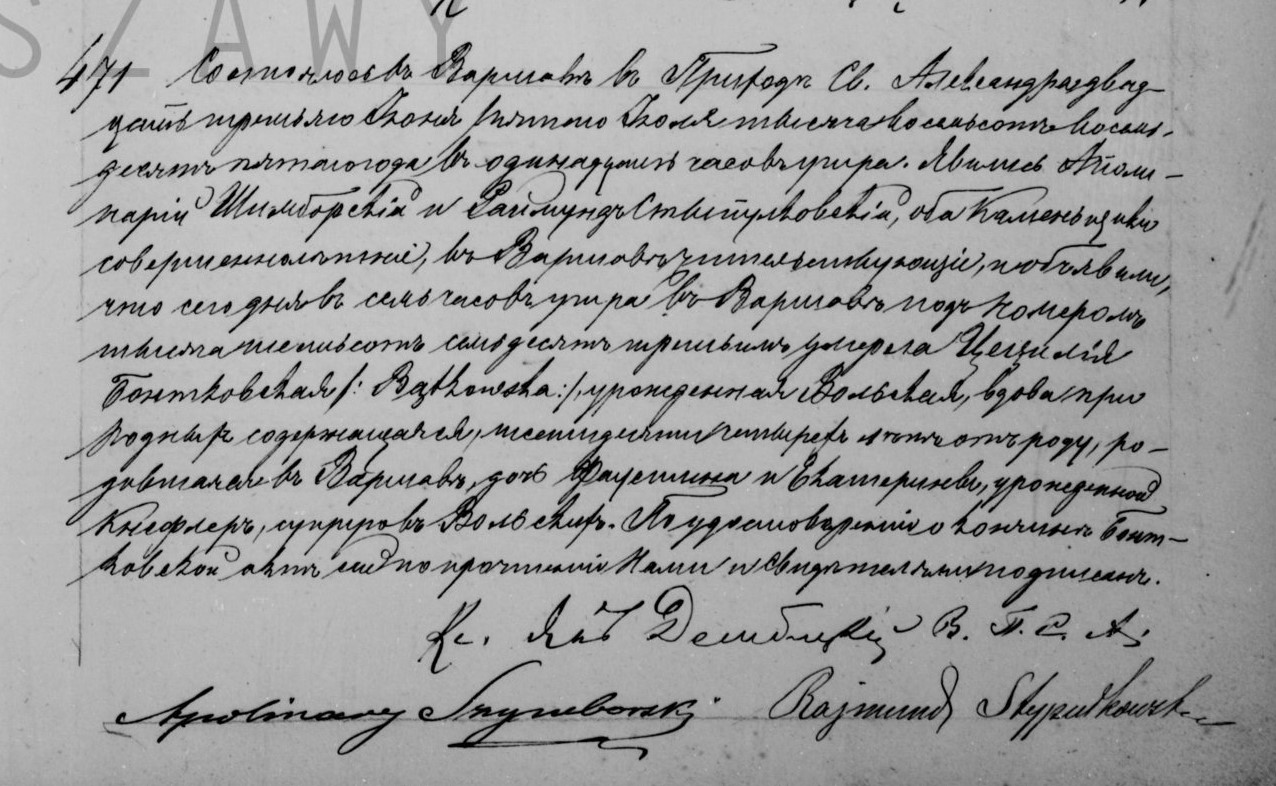 SZAWY
471 Состоялось въ Варшавѣ въ Приходѣ Св. Александра двад-
цать третьяго Іюня /пятаго Іюля тысяча восемьсотъ восемь-
десятъ пятаго года въ одинадцать часовъ утра. Явились Аполи-
нарій Шимборскій и Раймундъ Стыпулковскій, оба Каменьщики
совершеннолѣтніе, въ Варшавѣ жительствующіе, и объявили,
что сего дня въ семь часовъ утра въ Варшавѣ подъ номеромъ
тысяча шестьсотъ семьдесятъ третьимъ умерла Цецилія
Бонтковская /: Bątkowska :/, урожденная Вольская, вдова при
родныхъ содержащаяся, шестидесяти четырехъ лѣтъ отъ роду, ро-
дившаяся въ Варшавѣ, дочь Фаустина и Екатерины, урожденной
Кнефлеръ, супруговъ Вольскихъ. По удостовѣреніи о кончинѣ Бонт-
ковской актъ сей по прочтеніи Нами и свидѣтелями подписанъ.
Кс. Янъ В. П. С. А.
Apolinary Szymborski Rajmund Stypułkowski